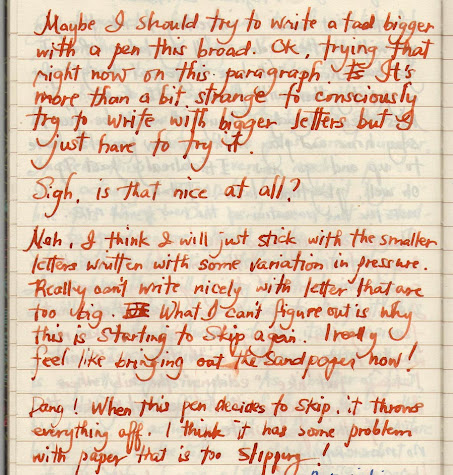 Maybe I should try to write a tad bigger
with a pen this broad. Ok, trying that
right now on this paragraph. It's
more than a bit strange to consciously
try to write with bigger letters but I
just have to try it.
Sigh, is that nice at all?
Nah, I think I will just stick with the smaller
letters written with some variation in pressure.
Really can't write nicely with letter that are
too big. What I can't figure out is why
this is starting to skip again. I really
feel like bringing out the sandpaper now!
Dang! When this pen decides to skip, it throws
everything off. I think it has some problem
with paper that is too slippery!